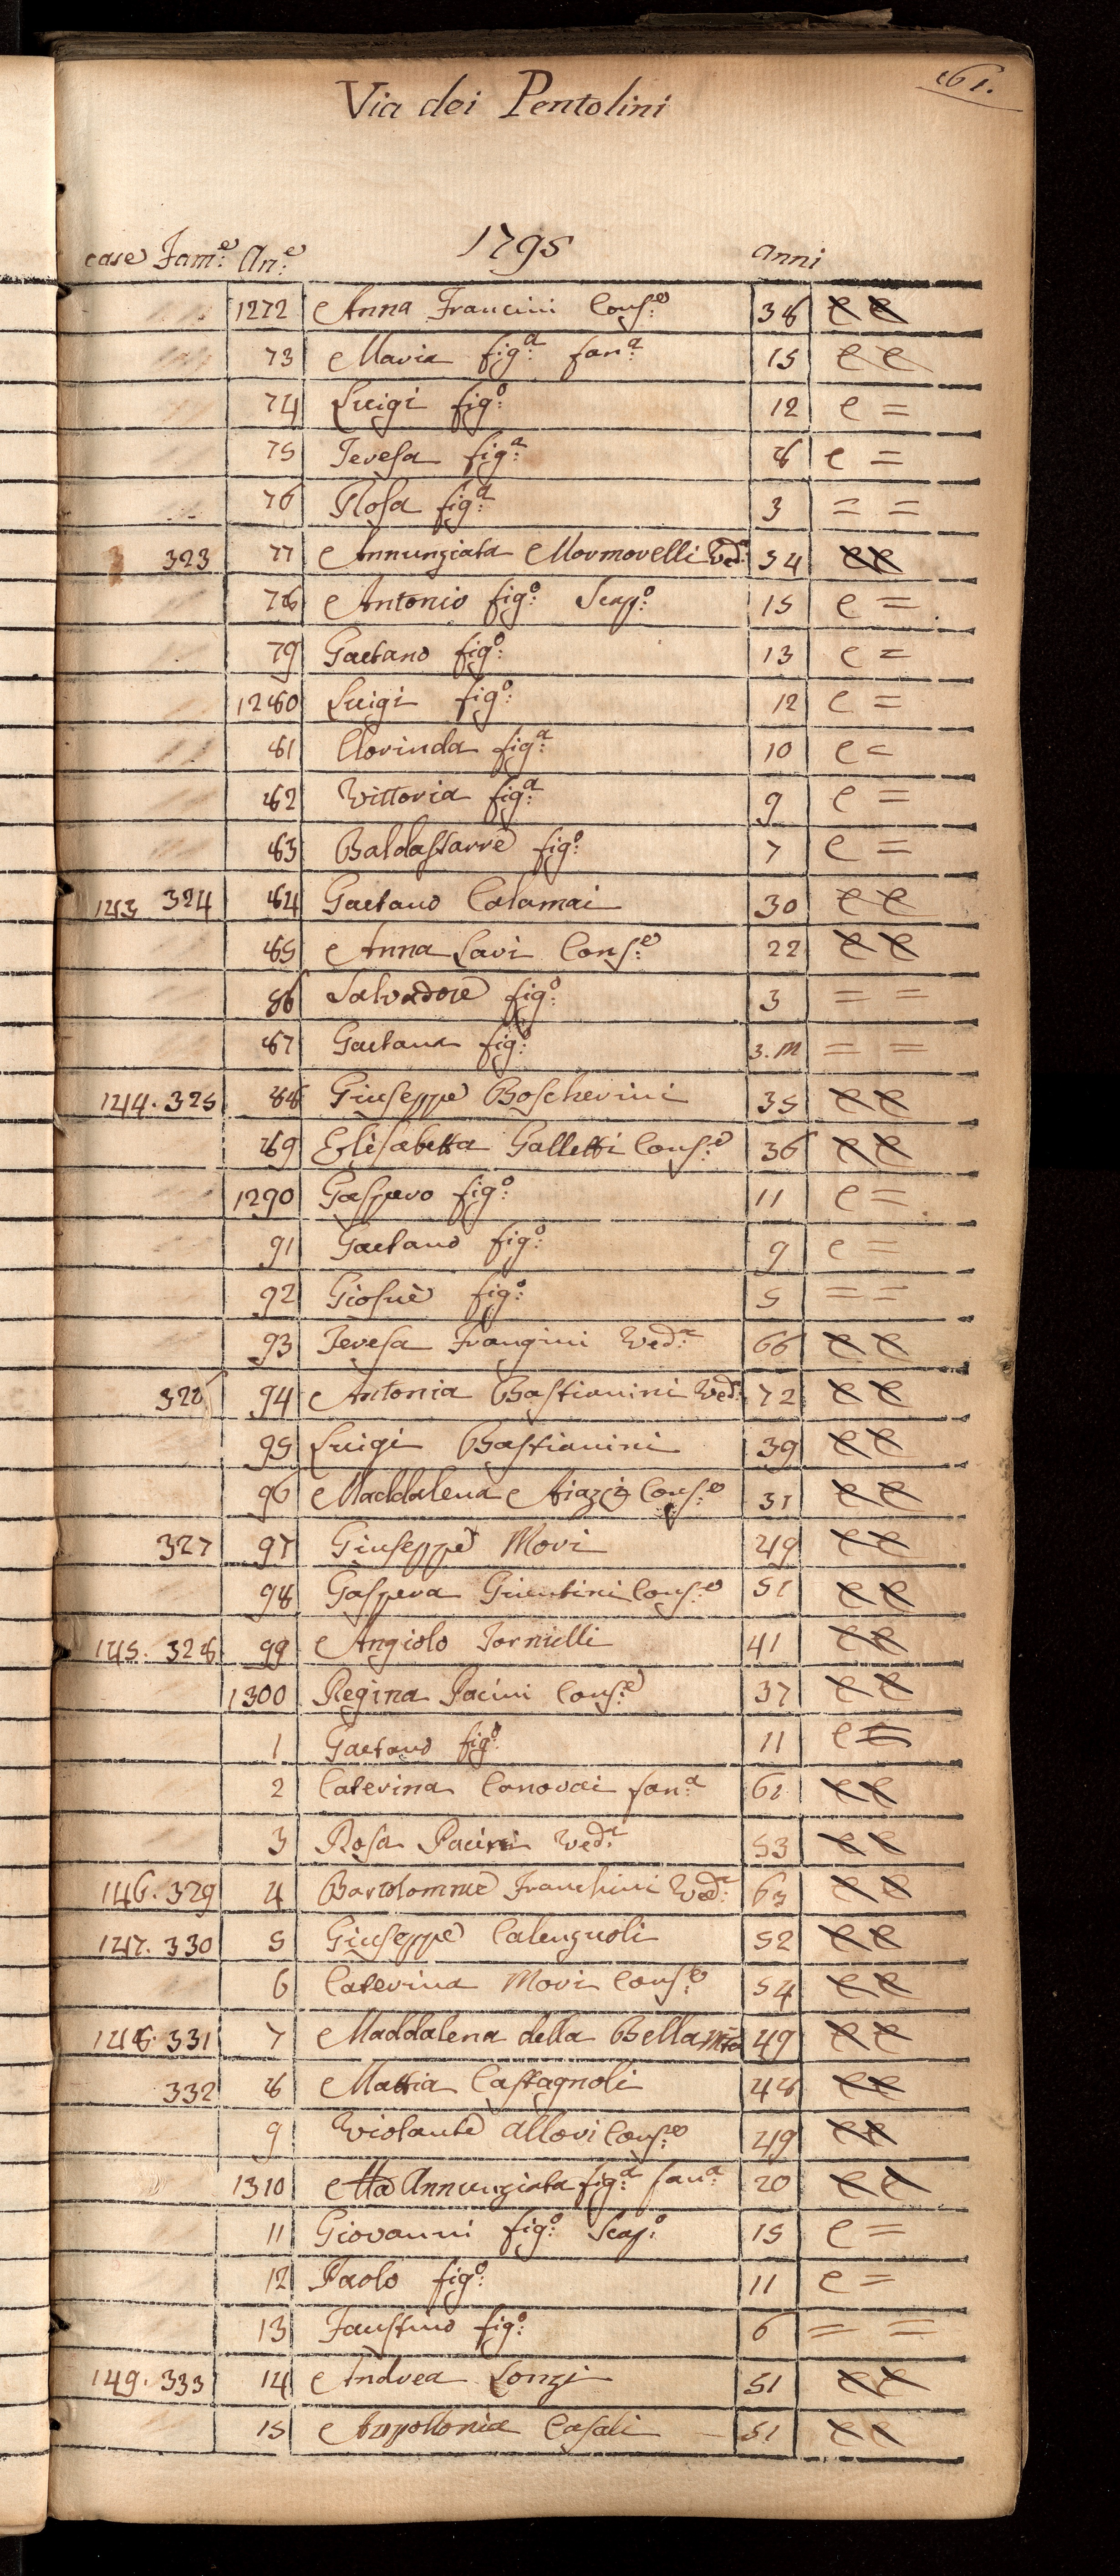 61.
Via dei Pentolini
1795
case Fam:e An:e anni
1272 Anna Francini Cons:e 38 C C
73 Maria fig:a fan:a 15 C C
74 Luigi fig:o 12 C =
75 Teresa fig:a 8 C =
76 Rosa fig:a 3 = =
323 77 Annunziata Mormorelli Ved:a 54 C C
78 Antonio fig:o Scap:o 15 C =
79 Gaetano fig:o 13 C =
1280 Luigi fig:o 12 C =
81 Clorinda fig:a 10 C =
82 Vittoria fig:a 9 C =
83 Baldassarre fig:o 7 C =
143 324 84 Gaetano Calamai 30 C C
85 Anna Lari Cons:e 22 C C
86 Salvadore fig:o 3 = =
87 Gaetana fig: 3.m = =
144. 325 88 Giuseppe Boscherini 35 C C
89 Elisabetta Galletti Cons:e 36 C C
1290 Gaspero fig:o 11 C =
91 Gaetano fig:o 9 C =
92 Giosuè fig:o 5 = =
93 Teresa Frangini Ved:a 66 C C
326 94 Antonia Bastianini Ved:a 72 C C
95 Luigi Bastianini 39 C C
96 Maddalena Aiazzi Cons:e 31 C C
327 97 Giuseppe Mori 49 C C
98 Gaspera Giuntini Cons:e 51 C C
145. 328 99 Angiolo Tornielli 41 C C
1300 Regina Pacini Cons:e 37 C C
1 Gaetano fig:o 11 C =
2 Caterina Canovai fan:a 61 C C
3 Rosa Pacini Ved:a 53 C C
146. 329 4 Bartolommeo Franchini Ved: 63 C C
147. 330 5 Giuseppe Calenzuoli 52 C C
6 Caterina Mori Cons:e 54 C C
148. 331 7 Maddalena della Bella 49 C C
332 8 Mattia Castagnoli 48 C C
9 Violante Allori Cons:e 49 C C
1310 Ma Annunziata fig:a fan:a 20 C C
11 Giovanni fig:o Scap:o 15 C =
12 Paolo fig:o 11 C =
13 Faustino fig:o 6 = =
149. 333 14 Andrea Lonzi 51 C C
15 Appollonia Casali 51 C C